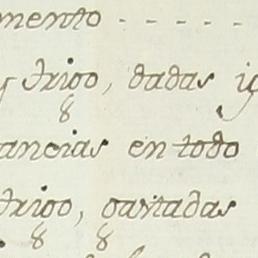 mento . - - - -
y trigo, dadas ig
ancias en todo
trigo, gastadas